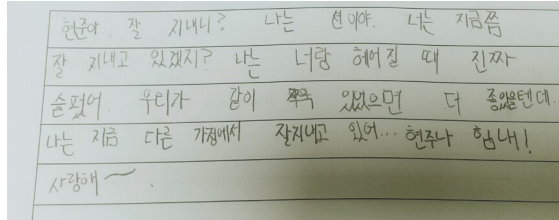 현준아. 잘 지내니? 나는 션이야. 너는 지금쯤
잘 지내고 있겠지? 나는 너랑 헤어질 때 진짜
슬펐어. 우리가 같이 쭉 있었으면 더 좋았을텐데..
나는 지금 다른 가정에서 잘지내고 있어... 현주나 힘내!
사랑해~.